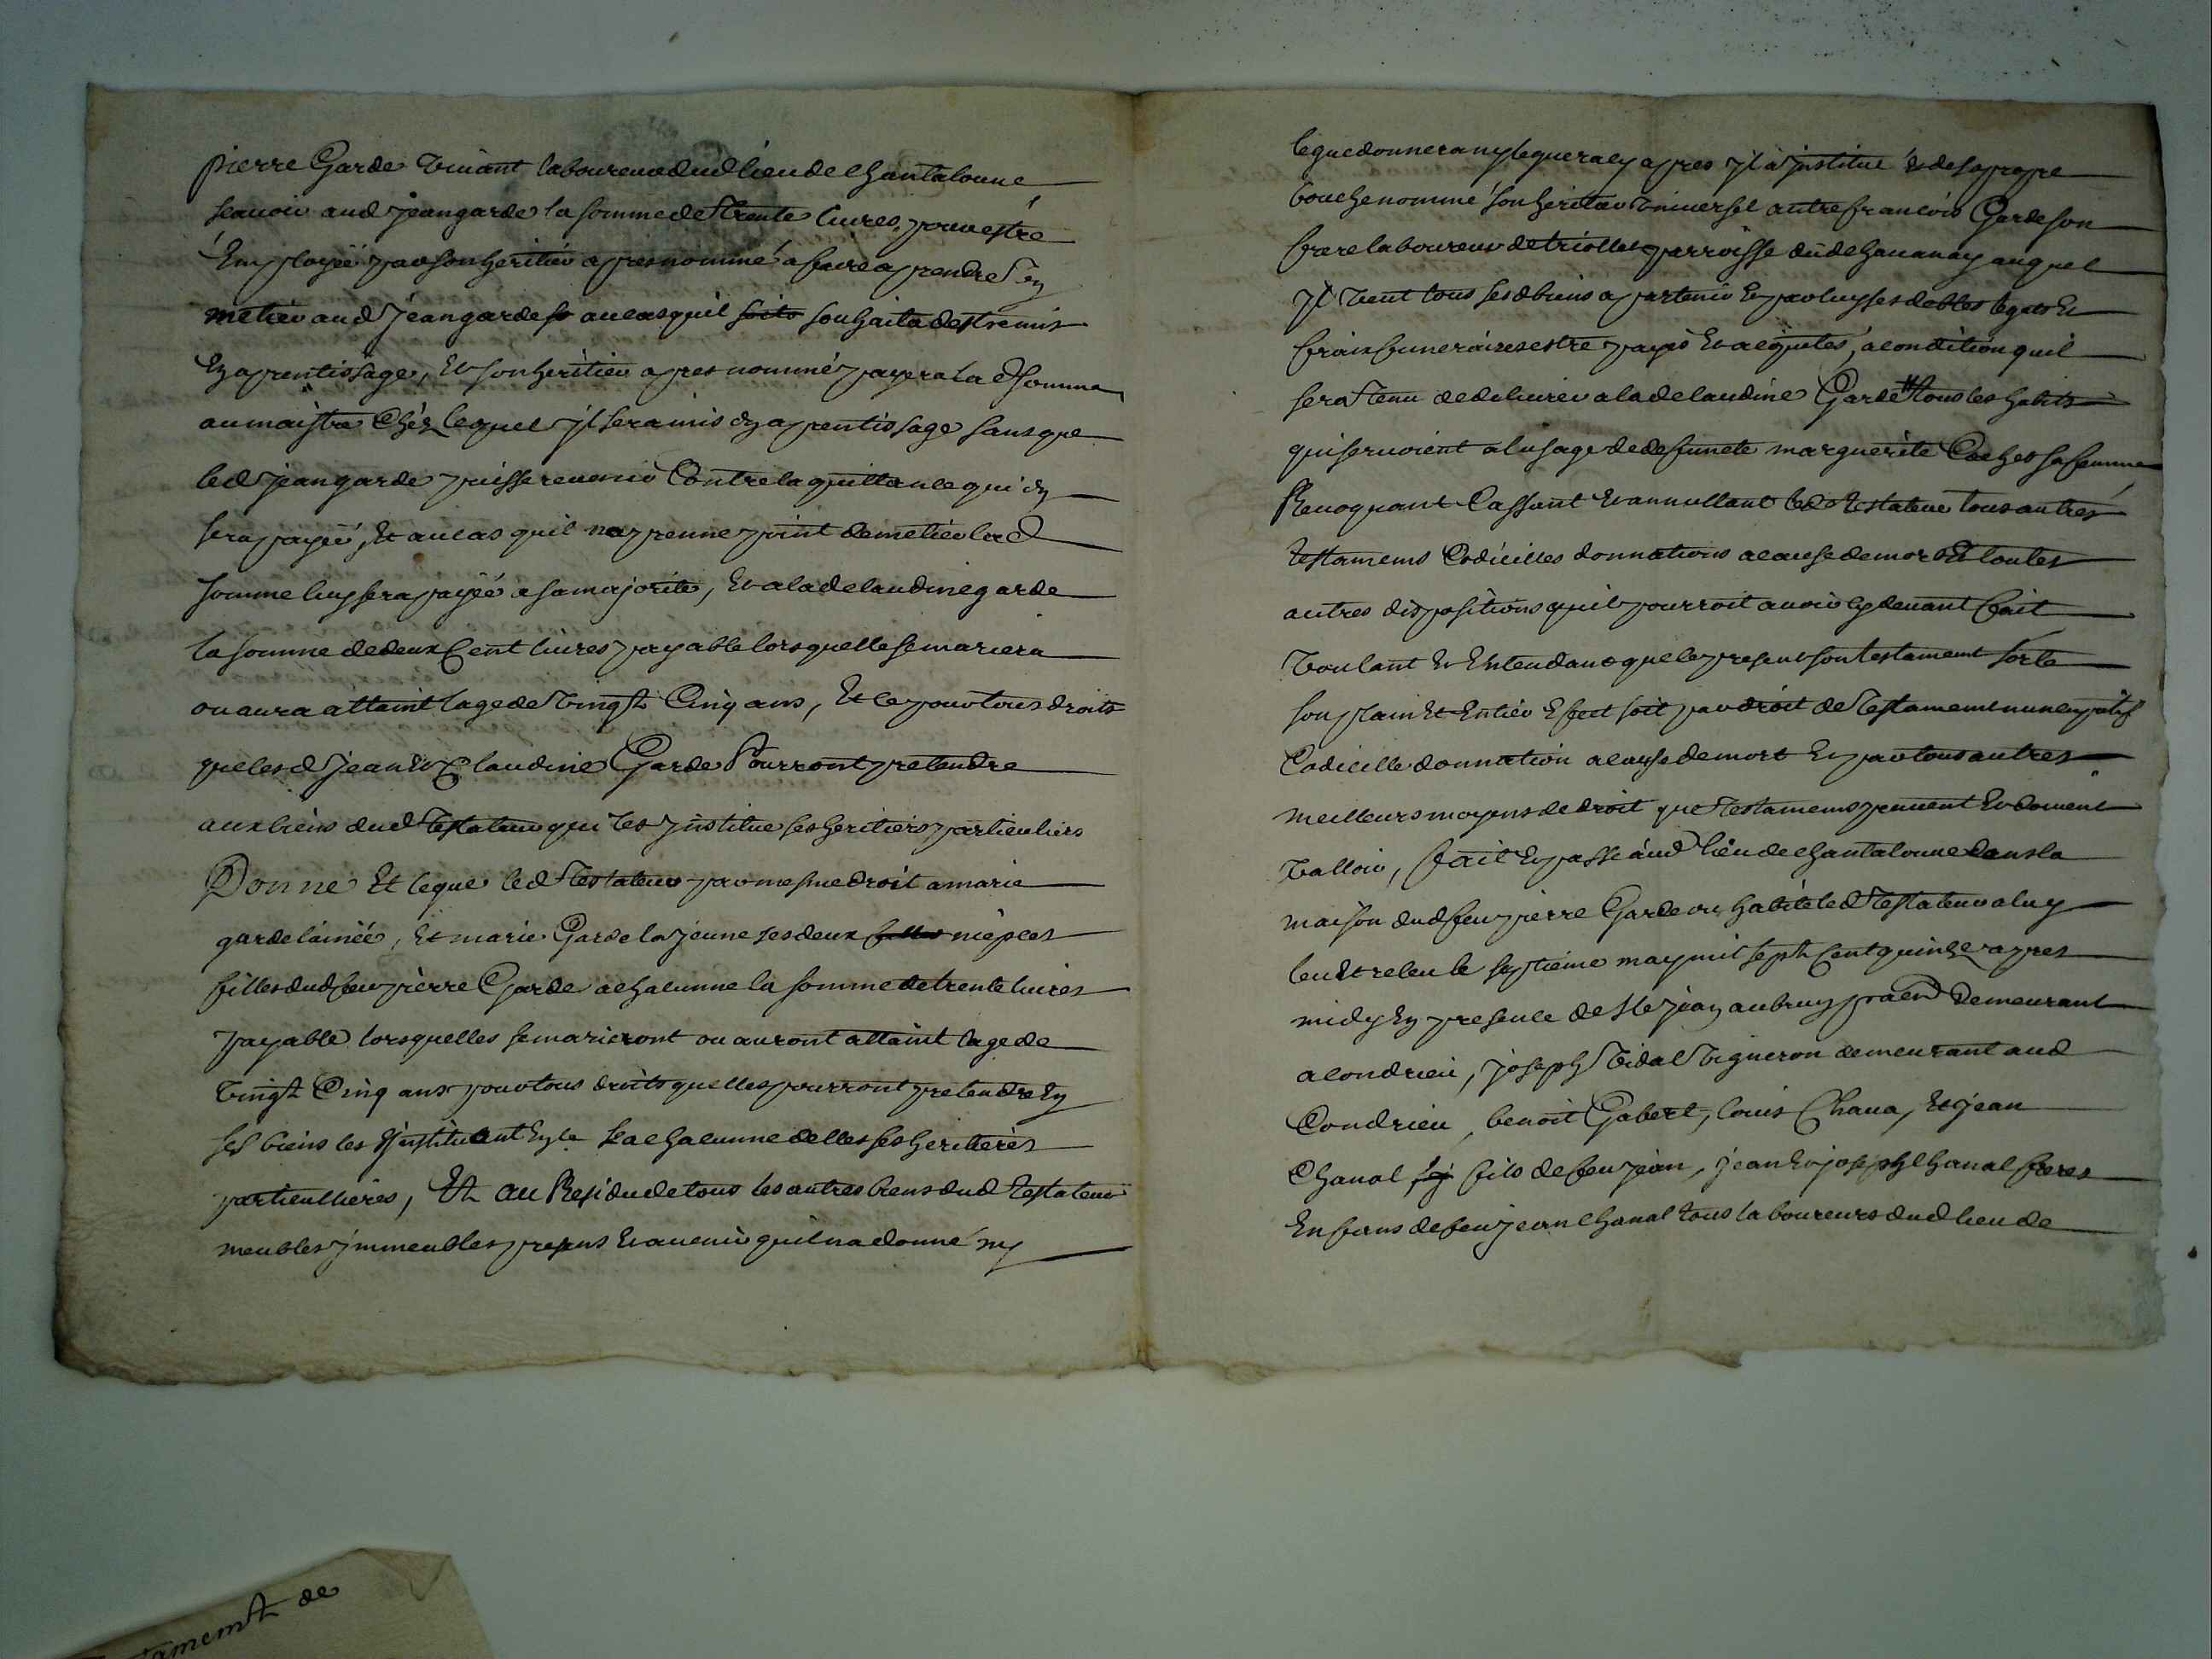 pierre Garde vivant laboureur dud lieu de chantalouue
scauoir aud jean garde la somme de trente liures, pour estre
Employéé par son heritier apres nommé a faire aprendre un
metier aud jean garde so au cas quil soito souhaita destre mis
En aprentissage, Et son heritier apres nommé payera lad somme
au maistre chéz lequel jl sera mis en aprentissage sans que
led jean garde puisse reuenir Contre la quittance qui en
sera payéé, Et au cas quil naprenne point de metier lad
somme luy sera payéé a sa majorité, Et a lad claudine garde
la somme de deux Cent liures payable lors quelle se mariera
ou aura attaint lage de vingt Cinq ans, Et ce pour tous droits
que lesd jean Et Claudine Garde Pourront pretendre
aux biens dud testateur qui les jnstitue ses heritiers particuliers
Donne Et legue led testateur par mesme droit a marie
garde lainéé, Et marie Garde la jeune ses deux filles niepces
filles dud feu pierre Garde a chacunne la somme de trente liures
payable lors quelles se marieront ou auront attaint lage de
vingt Cinq ans pour tous droits quelles pourront pretendre En
ses biens les jnstituant En ce a chacunne delles ses heriteres
particullieres, Et Au Residu de tous les autres biens dud testateur
meubles jmmeubles presens Et auenir quil na donné ny
legue donnera ny leguera cy apres jl a jnstitué & de sa propre
bouche nommé son heritier vniuersel autre francois Garde son
frere laboureur de triollet parroisse dud chauanay auquel
jl veut tous sesd biens apartenir Et par luy ses debtes legats Et
fraix funeraires estre payés Et acquités, a condition quil
sera tenu de deliurer a lad claudine Garde tous les habits
qui seruoient a lusage de defuncte marguerite Cachet sa femme
Reuoquant Cassant Et annullant led testateur tous autres
testamens Codicilles donnations a cause de mort Et toutes
autres dispositions quil pourroit auoir cy deuant fait
voulant Et Entendant que le present son testament sorte
son plain Et Entier Effect soit par droit de testament nuncupatif
Codicille donnation a cause de mort Et par tous autres
meilleurs moyens de droit que testamens peuuent Et doiuent
valloir, fait Et passé aud lieu de chantalouue dans la
maison dud feu pierre Garde ou habite led testateur a luy
leu Et releu le septieme may mil sept Cent quinze apres
midy En presence de Sr jean aubruy demeurant
a condrieu, joseph vidal vigneron demeurant aud
Condrieu, benoit Gabert, louis Chaua, Et jean
Chanal fils de feu jean, jean Et joseph chanal freres
Enfans de feu jean chanal tous laboureurs dud lieu de
tament de